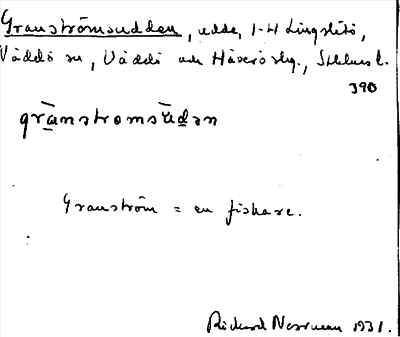 Granströmsudden, udde, 1-4 Lingslätö,
Väddö sn, Väddö och Häverö skg., Sthlms l.
390
granstromsudən
Granström = en fiskare.
Rickard 1931.